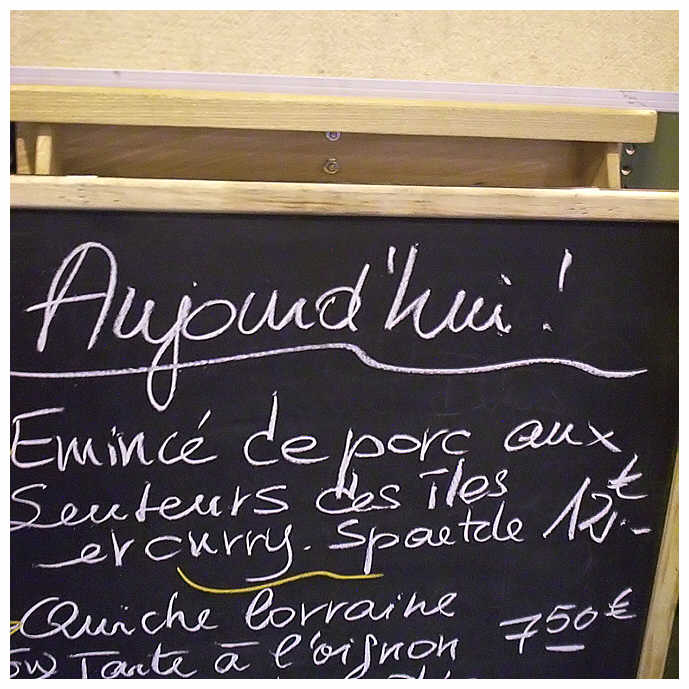 Aujourd'hui !
Emincé de porc aux
Senteurs des îles
et curry. Spaetzle 12.- €
Quiche lorraine 7 50 €
ou Tarte à l'oignon